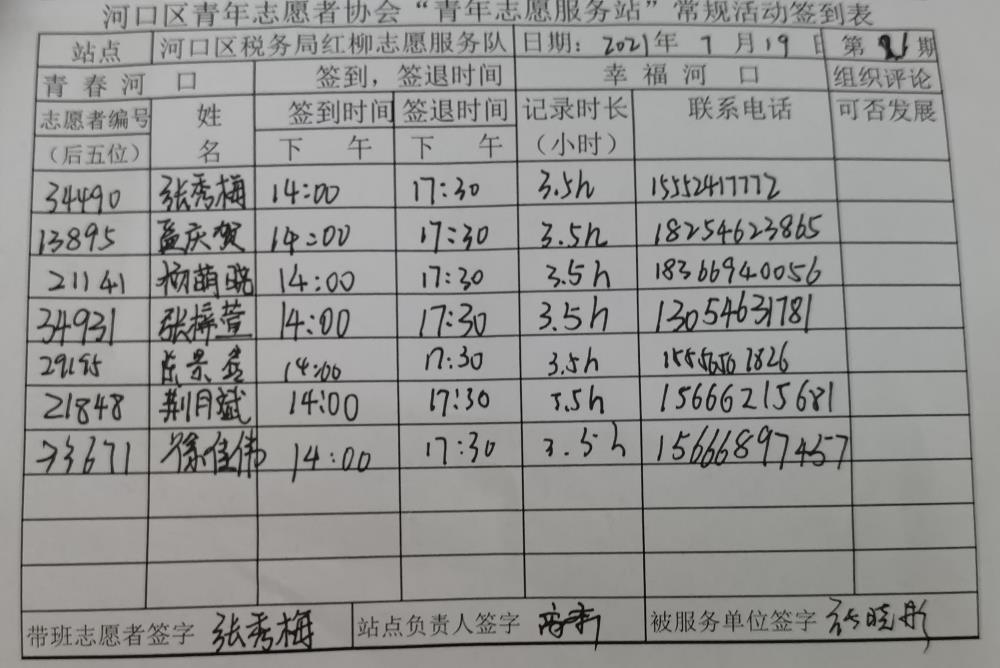 河口区青年志愿者协会“青年志愿服务站”常规活动签到表
站点 河口区税务局红柳志愿服务队 日期: 2021年 7月19 第 期
青春河口 签到，签退时间 幸福河口 组织评论
志愿者编号 姓 签到时间 签退时间 记录时长 联系电话 可否发展
（后五位） 名 下午 下午 （小时）
34490 张秀梅 14:00 17:30 3.5h 15552417772
13895 孟庆贺 14:00 17:30 3.5h 18254623865
21141 杨萌晓 14:00 17:30 3.5h 18366940056
34931 张梓萱 14:00 17:30 3.5h 13054631781
29195 14:00 17:30 3.5h
21848 荆月斌 14:00 17:30 3.5h 15666215681
33671 徐佳伟 14:00 17:30 3.5h 15666897457
带班志愿者签字 张秀梅 站点负责人签字 被服务单位签字 张晓彤